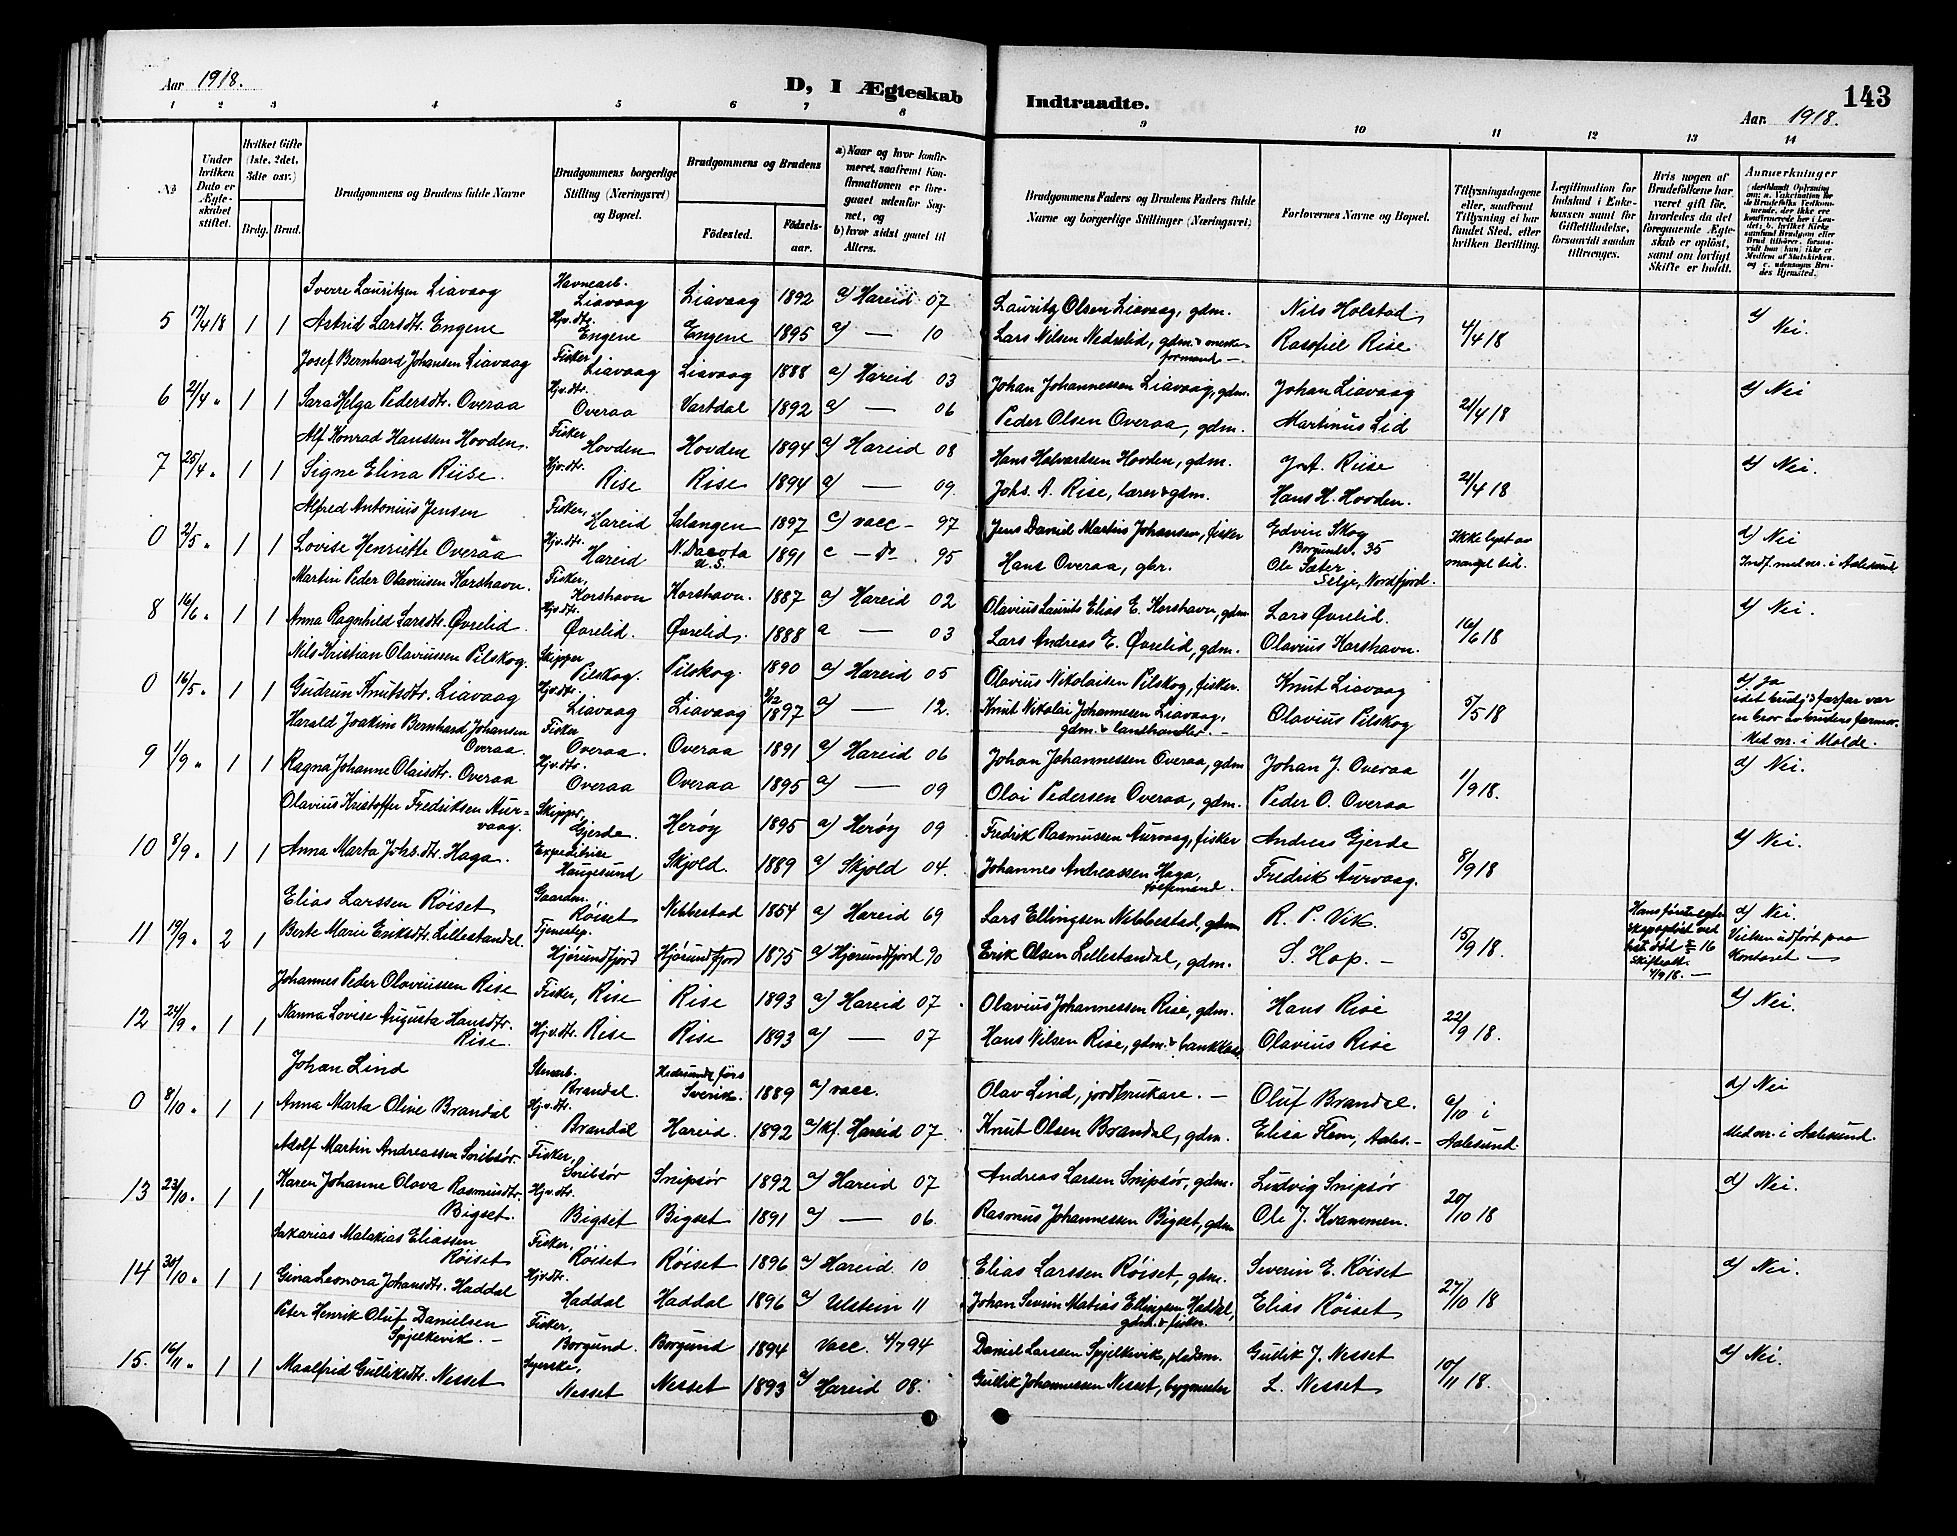 Aar 1918.
D, I Ægteskab
Indtraadte.
143
Aar 1918.
1 2 3 4 5 6 7 8
9 10 11 12 13 14
No
Under hvilken Dato er Ægteskabet stiftet.
Hvilket Gifte (1ste, 2det, 3die osv.)
Brdg. Brud.
Brudgommens og Brudens fulde Navne
Brudgommens borgerlige Stilling (Næringsvei) og Bopæl.
Brudgommens og Brudens
Fødested.
Fødselsaar.
a) Naar og hvor konfirmeret, saafremt Konfirmationen er foregaaet udenfor Sognet, og
b) hvor sidst gaaet til Alters.
Brudgommens Faders og Brudens Faders fulde Navne og borgerlige Stillinger (Næringsvei)
Forlovernes Navne og Bopæl.
Tillysningsdagene eller, saafremt Tillysning ei har fundet Sted, efter hvilken Bevilling.
Legitimation for Indskud i Enkekassen samt for Giftetilladelse, forsaavidt saadan tiltrænges.
Hvis nogen af Brudefolkene har været gift før, hvorledes da det foregaaende Ægteskab er opløst, samt om lovligt Skifte er holdt.
Anmærkninger
5 17/4 18 1 1
Sverre Lauritzen Liavaag Havnearb. Liavaag Liavaag 1892 a) Hareid 07 Lauritz Olsen Liavaag, gdm. Nils Holstad 4/4 18 d) Nei.
Astrid Larsdtr. Engene Hjv.dtr. Engene Engene 1895 a) — 10 Lars Nilsen Nedrelid, gdm. Rasofiel Rise
6 21/4 " 1 1
Josef Bernhard Johansen Liavaag Fisker Liavaag Liavaag 1888 a) Hareid 03 Johan Johannessen Liavaag, gdm. Johan Liavaag 21/4 18 d) Nei
Sara Helga Pedersdtr. Overaa Hjv.dtr. Overaa Vartdal 1892 a) — 06 Peder Olsen Overaa, gdm. Martinus Lid
7 25/4 " 1 1
Alf Konrad Hanssen Hovden Fisker Hovden Hovden 1894 a) Hareid 08 Hans Halvardsen Hovden, gdm. J. A. Riise 21/4 18 d) Nei.
Signe Elina Riise. Hjv.dtr. Rise Rise 1894 a) — 09. Johs. A. Rise, lærer & gdm. Hans H. Hovden.
0 2/5 " 1 1
Alfred Antonius Jensen Fisker, Hareid Salangen 1897 c) vacc — 97 Jens Daniel Martin Johansen, fisker Edvin Skog Borgundv. 35 Ikke lyst av mangel tid. d) Nei
Lovise Henriette Overaa Hjv.dtr. Hareid N. Dacota U.S. 1891 c — do. 95 Hans Overaa, gbr. Ole Sæter Selje, Nordfjord. Indf. med nr. i Aalesund.
8 16/6 " 1 1
Martin Peder Olaviusen Korshavn. Fisker, Korshavn Korshavn. 1887 a) Hareid 02 Olavius Laurits Elias E. Korshavn, gdm. Lars Øvrelid. 16/6 18 d) Nei.
Anna Ragnhild Larsdtr. Øvrelid. Hjv.dtr. Øvrelid. Øvrelid. 1888 a — 03 Lars Andreas E. Øvrelid, gdm. Olavius Korshavn.
0 16/5 " 1 1
Nils Kristian Olaviussen Pilskog. Skipper Pilskog. Pilskog. 1890 a) Hareid 05 Olavius Nikolaisen Pilskog, fisker. Knut Liavaag 5/5 18 d) Ja
Gudrun Knutsdtr. Liavaag Hjv.dtr. Liavaag Liavaag 9/12 1897 a) — 12. Knut Nikolai Johannesen Liavaag, gdm. & landhandler — Olavius Pilskog idet brudg's farfar var en bror av brudens farmor. Med nr. i Molde.
9 1/9 " 1 1
Harald Joakim Bernhard Johansen Overaa. Fisker Overaa. Overaa 1891 a) Hareid 06 Johan Johannessen Overaa, gdm Johan J. Overaa 1/9 18. d) Nei.
Ragna Johanne Olaisdtr. Overaa Hjv.dtr. Overaa Overaa 1895 a) — 09 Olai Pedersen Overaa, gdm. Peder O. Overaa
10 8/9 " 1 1
Olavius Kristoffer Fredriksen Aurvaag. Skipper, Gjerde. Herøy 1895 a) Herøy 09 Fredrik Rasmussen Aurvaag, fisker Andreas Gjerde 8/9 18 d) Nei.
Anna Marta Johs.dtr. Haga. Expeditrice Haugesund Skjold. 1889 a) Skjold 04. Johannes Andreassen Haga, Fredrik Aurvaag.
11 19/9 " 2 1
Elias Larssen Röiset Gaardm. Röiset Nebbestad 1854 a) Hareid 69 Lars Ellingsen Nebbestad, gdm R. P. Vik. 15/9 18. d) Nei.
Berte Marie Eriksdtr. Lillestandal. Tjenestep. Hjörundfjord Hjörundfjord 1875 a) Hjørundfjord 90 Erik Olsen Lillestandal, gdm. S. Hop. — Vielsen udført paa kontoret —
12 24/9 " 1 1
Johannes Peder Olaviussen Rise Fisker, Rise Rise 1893 a) Hareid 07 Olavius Johannessen Rise, gdm. Hans Rise 22/9 18. d) Nei.
Nanna Lovise Augusta Hansdtr. Rise. Hjv.dtr. Rise Rise 1893 a) — 07 Hans Nilsen Rise, gdm. & bankkas. Olavius Rise
0 8/10 " 1 1
Johan Lind Stenarb. Brandal. Sverik. 1889 a) vacc. Olav Lind, jordbrukare. — Oluf Brandal. 6/10 i Aalesund d) Nei
Anna Marta Oline Brandal Hjv.dtr. Brandal Hareid. 1892 a) kf. Hareid 07. Knut Olsen Brandal, gdm. Elisa Flem, Aales. — Med nr. i Aalesund.
13 23/10 " 1 1
Adolf Martin Andreassen Snibsör. Fisker, Snibsör Snipsør 1892 a) Hareid 07 Andreas Larsen Snipsør, gdm. Ludvig Snipsør 20/10 18 d) Nei.
Karen Johanne Olava Rasmusdtr. Bigset. Hjv.dtr. Bigset Bigset 1891 a) — 06. Rasmus Johannessen Bigset, gdm Ole J. Kvammen.
14 30/10 " 1 1
Sakarias Malakias Eliassen Röiset Fisker, Röiset Röiset 1896 a) Hareid 10 Elias Larssen Röiset, gdm. Severin E. Röiset 27/10 18 d) Nei.
Gina Leonora Johansdtr. Haddal Hjv.dtr. Haddal Haddal 1896 a) Ulstein 11 Johan Severin Matias Ellingsen Haddal, gdm. & fisker. Elias Röiset
15. 16/11 " 1 1
Peter Henrik Oluf Danielsen Spjelkevik. — Fisker, Borgund. Borgund 1894 Vacc. 4/7 94 Daniel Larssen Spjelkevik, pladsm. Gullik J. Nesset 10/11 18. d) Nei.
Maalfrid Gulliksdtr. Nesset Syerske, Nesset Nesset 1893 a) Hareid 08. Gullik Johannessen Nesset, bygmester L. Nesset